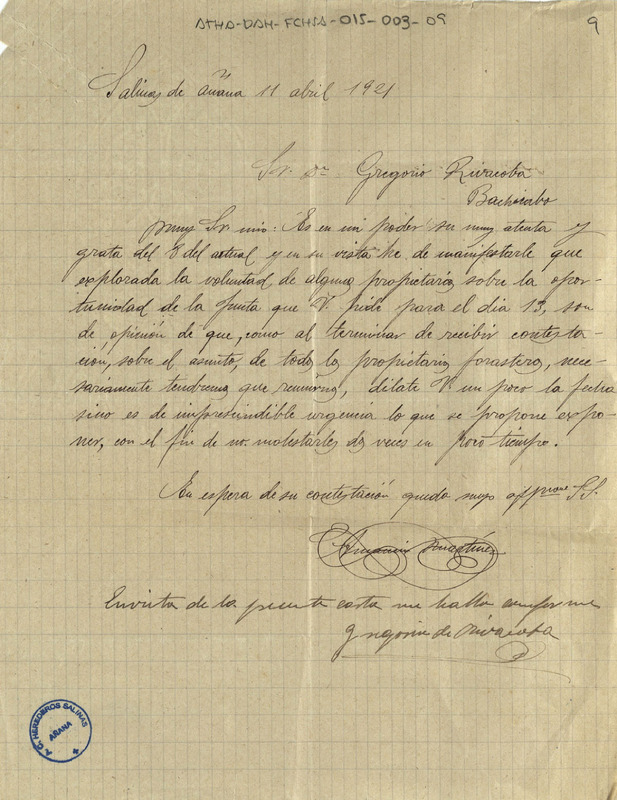 ATHA-DAH-FCHSA-015-003-09
9
Salinas de Añana 11 abril 1921
Sr. Dn Gregorio Rivacoba
Bachicabo
Muy Sr. mio: Es en mi poder su muy atenta y
grata del 8 del actual y en su vista he de manifestarle que
explorada la voluntad de algunos propietarios sobre la opor-
tunidad de la Junta que V. pide para el dia 13, son
de opinión de que, como al terminar de recibir contesta-
cion, sobre el asunto, de todos los propietarios forasteros, nece-
sariamente tendremos que reunirnos, dilate V. un poco la fecha
sino es de imprescindible urgencia lo que se propone expo-
ner, con el fin de no molestarles dos veces en poco tiempo.
En espera de su contestación queda suyo affmo SS.
Martinez
En vista de la presente carta me hallo conforme
Gregorio de Rivacoba
A. C. HEREDEROS SALINAS
AÑANA